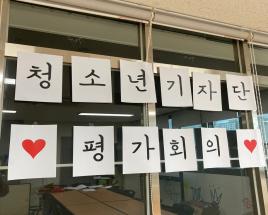 청소년기자단
♥평가회의♥